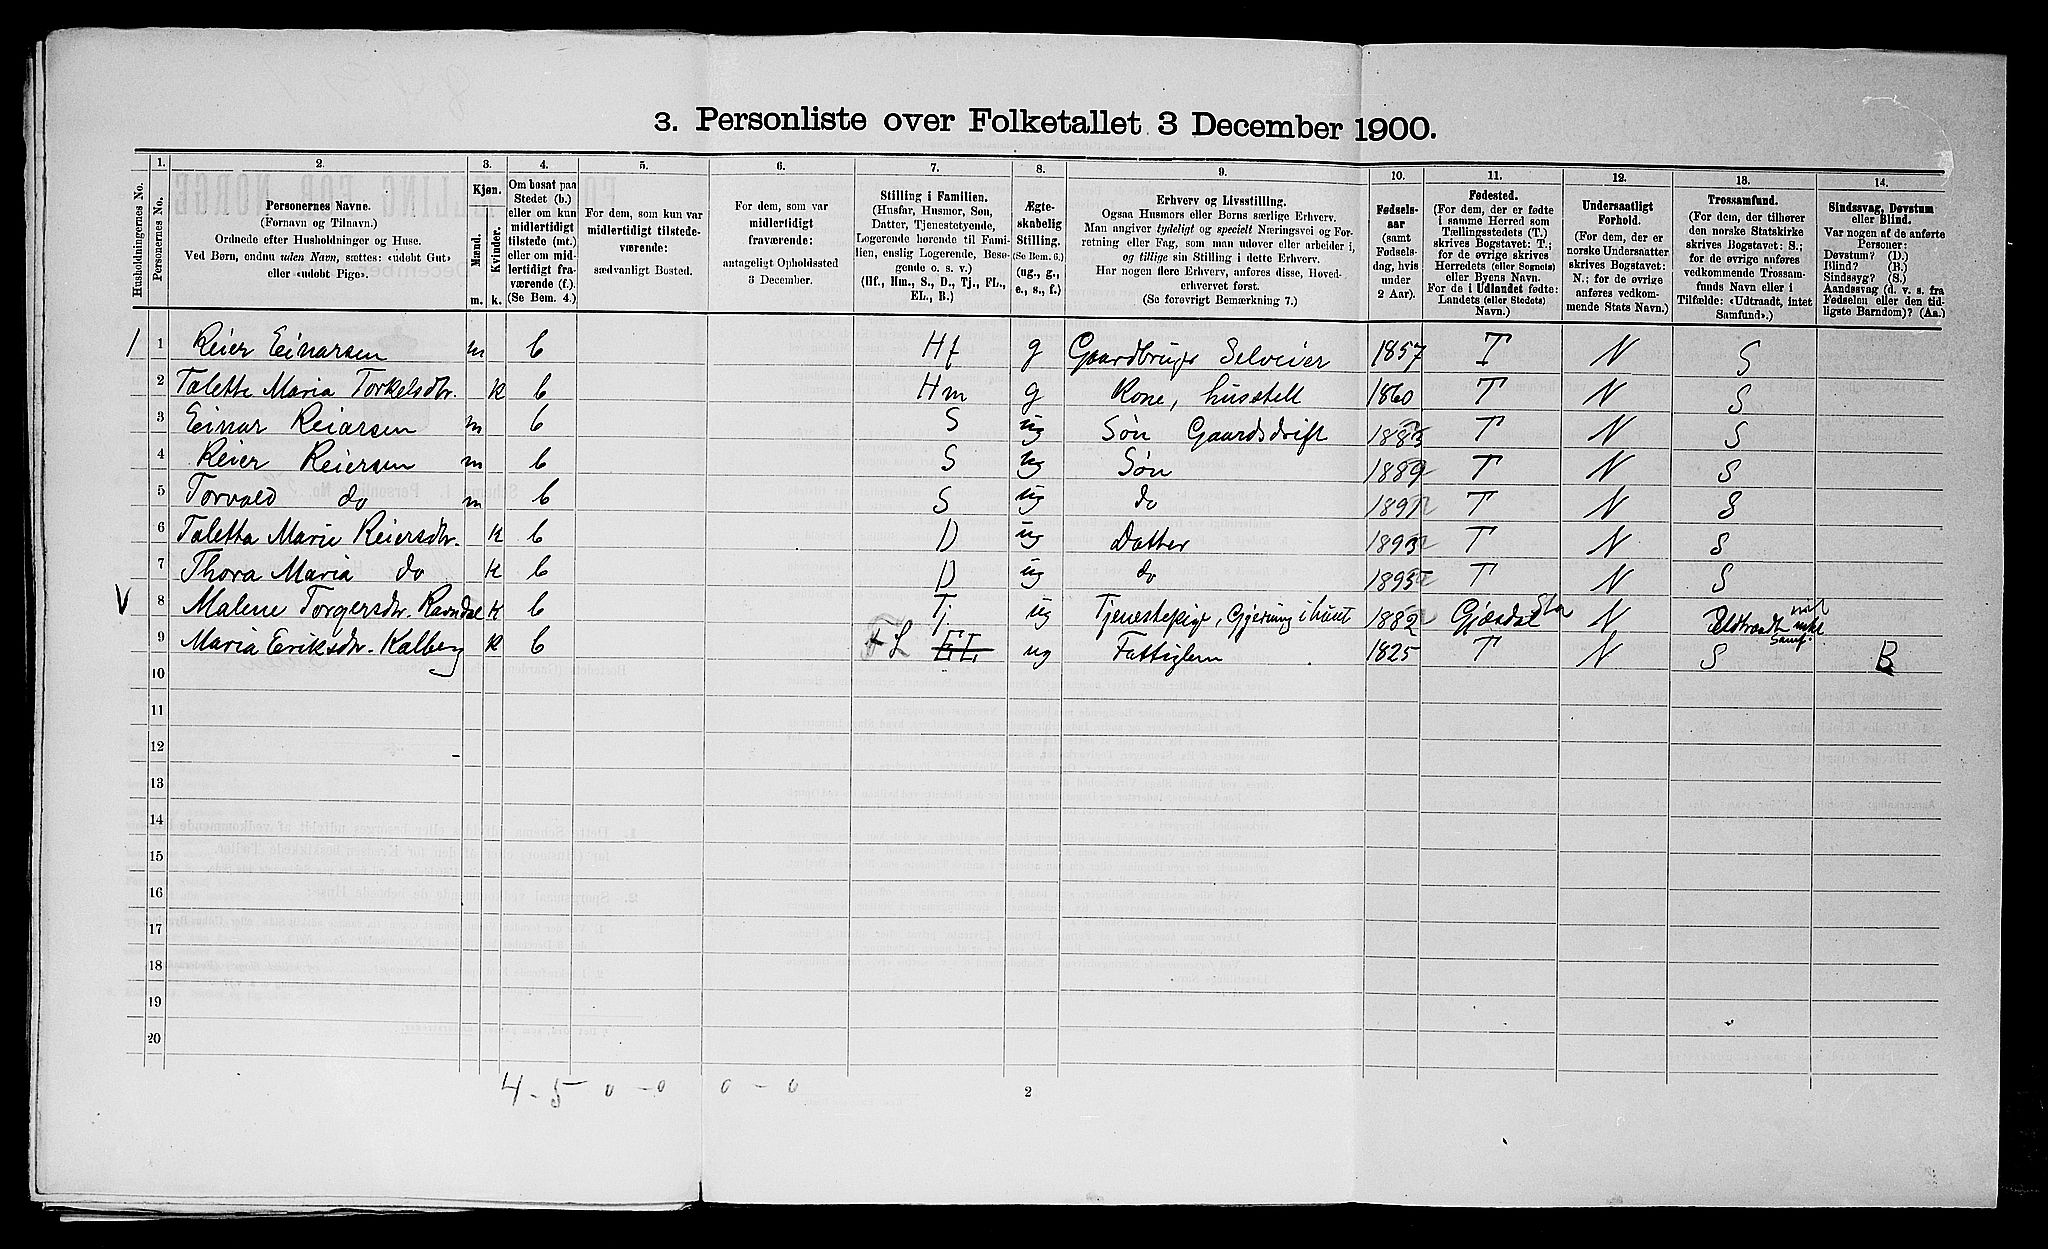 3. Personliste over Folketallet 3 December 1900.
1. 2. 3. 4. 5. 6. 7. 8. 9. 10. 11. 12. 13. 14.
Husholdningernes No.
Personernes No.
Personernes Navne.
(Fornavn og Tilnavn.)
Ordnede efter Husholdninger og Huse.
Ved Børn, endnu uden Navn, sættes: «udøbt Gut»
eller «udøbt Pige».
Kjøn.
Mænd.
Kvinder.
m. k.
Om bosat paa
Stedet (b.)
eller om kun
midlertidigt
tilstede (mt.)
eller om mid-
lertidigt fra-
værende (f.).
(Se Bem. 4.)
For dem, som kun var
midlertidigt tilstede-
værende:
sædvanligt Bosted.
For dem, som var
midlertidigt
fraværende:
antageligt Opholdssted
3 December.
Stilling i Familien.
(Husfar, Husmor, Søn,
Datter, Tjenestetyende,
Logerende hørende til Fami-
lien, enslig Logerende, Besø-
gende o. s. v.)
(Hf., Hm., S., D., Tj., FL.,
EL., B.)
Ægte-
skabelig
Stilling.
(Se Bem. 6.)
(ug., g.,
e., s., f.)
Erhverv og Livsstilling.
Ogsaa Husmors eller Børns særlige Erhverv.
Man angiver tydeligt og specielt Næringsvei og For-
retning eller Fag, som man udøver eller arbeider i,
og tillige sin Stilling i dette Erhverv.
Har nogen flere Erhverv, anføres disse, Hoved-
erhvervet først.
(Se forøvrigt Bemærkning 7.)
Fødsels-
aar
(samt
Fødsels-
dag, hvis
under
2 Aar).
Fødested.
(For dem, der er fødte
i samme Herred som
Tællingsstedets (T.)
skrives Bogstavet: T.;
for de øvrige skrives
Herredets (eller Sognets)
eller Byens Navn.
For de i Udlandet fødte:
Landets (eller Stedets)
Navn.)
Undersaatligt
Forhold.
(For dem, der er
norske Undersaatter
skrives Bogstavet:
N.; for de øvrige
anføres vedkom-
mende Stats Navn.)
Trossamfund.
(For dem, der tilhører
den norske Statskirke
skrives Bogstavet: S.;
for de øvrige anføres
vedkommende Trossam-
funds Navn eller i
Tilfælde: «Udtraadt, intet
Samfund».)
Sindssvag, Døvstum
eller Blind.
Var nogen af de anførte
Personer:
Døvstum? (D.)
Blind? (B.)
Sindssyg? (S.)
Aandssvag (d. v. s. fra
Fødselen eller den tid-
ligste Barndom)? (Aa.)
1 1 Reier Einarsen m b Hf g Gaardbruger Selveier 1857 T N S
2 Talette Maria Torkelsdtr. k b Hm g Kone, husstell 1860 T N S
3 Einar Reiarsen m b S ug Søn Gaardsdrift 1883 T N S
4 Reier Reiersen m b S ug Søn 1889 T N S
5 Torvald do m b S ug do 1891 T N S
6 Taletta Marie Reiersdtr. k b D ug Datter 1893 T N S
7 Thora Maria do k b D ug do 1895 T N S
V 8 Malene Torgersdtr. Ravndal k b Tj ug Tjenestepige, Gjerning i huset 1882 Gjæsdal N Udtraadt Samf.
9 Maria Eriksdtr. Kalberg k b FL EL. ug Fattiglem 1825 T N S B
10
11
12
13
14
15
16
17
18
19
20
4 - 5 0 - 0 0 - 0
2